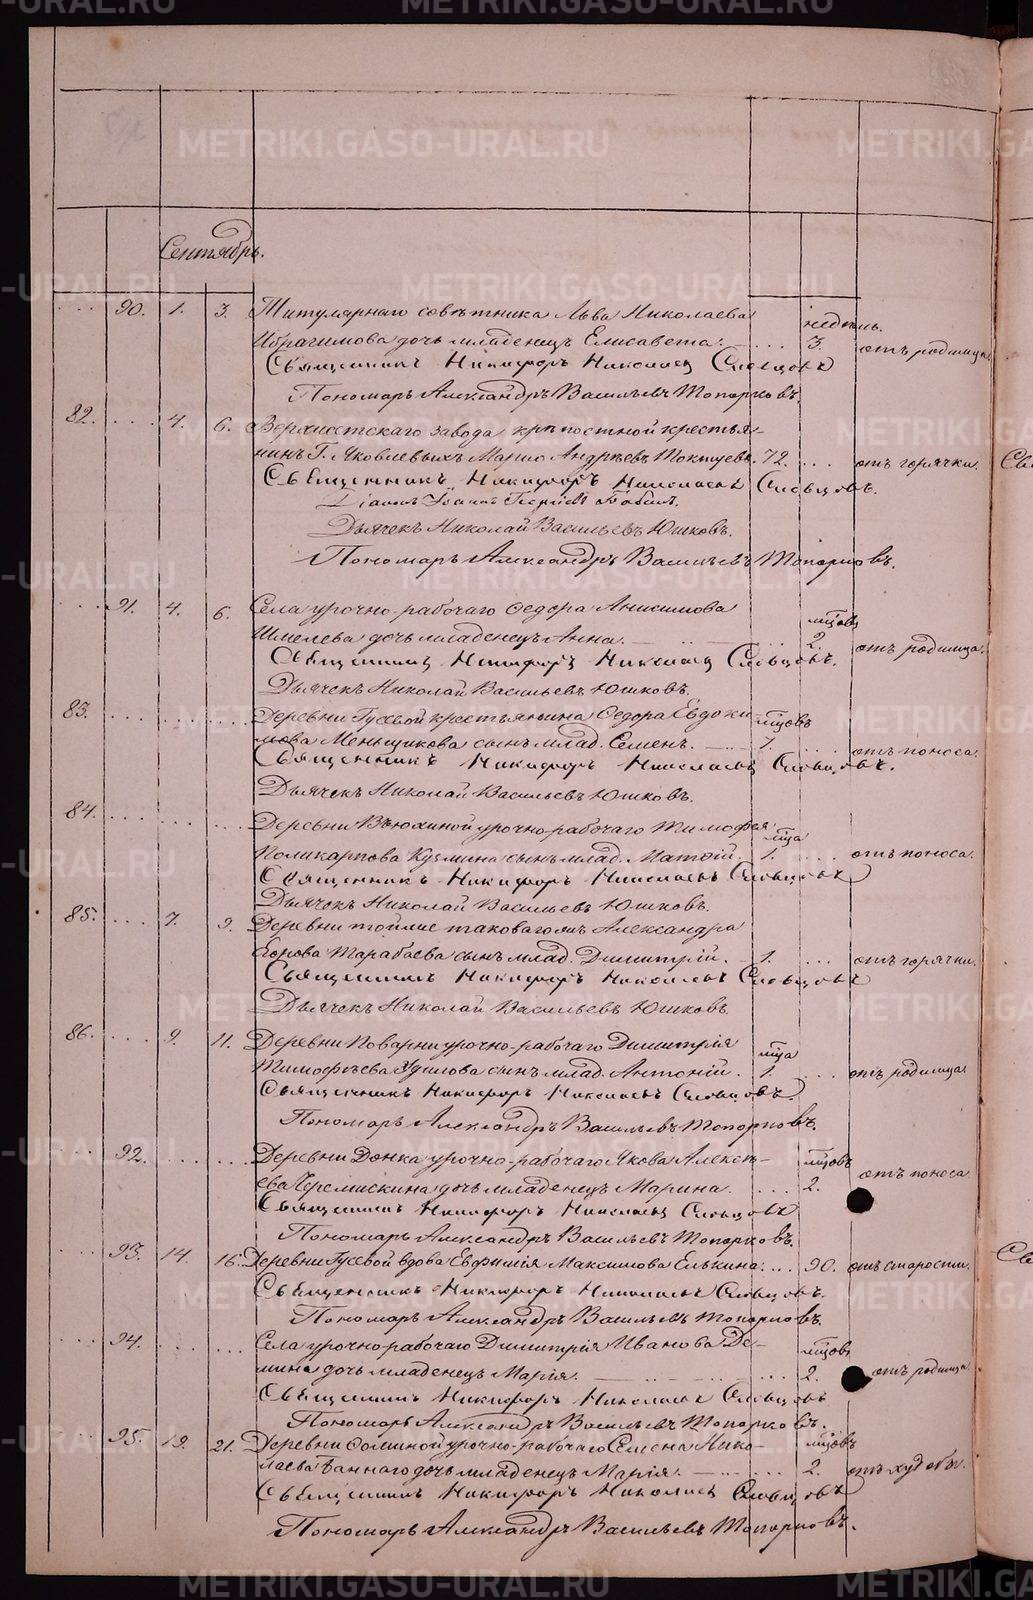 Сентябрь.
90. 1. 3. Титулярнаго совѣтника Льва Николаева недѣль.
Ибрагимова дочь младенецъ Елисавета. 3. отъ родимца
Священникъ Никифоръ Николаевъ Словцовъ
Пономарь Александръ Васильевъ Топорковъ.
82. 4. 6. Верхисетскаго завода крѣпостной крестья-
нинъ Г. Яковлевыхъ Андрѣевъ 72. отъ горячки.
Священникъ Никифоръ Николаевъ Словцовъ.
Діаконъ Іоаннъ Георгіевъ
Дьячекъ Николай Васильевъ Юшковъ.
Пономарь Александръ Васильевъ Топорковъ.
91. 4. 6. Села урочно-рабочаго Ѳедора Анисимова мѣсцовъ
Шмелева дочь младенецъ Анна. 2. отъ родимца.
Священникъ Никифоръ Николаевъ Словцовъ.
Дьячекъ Николай Васильевъ Юшковъ.
83. Деревни Гусевой крестьянина Ѳедора Евдоки- мѣсцовъ
мова Меньщикова сынъ млад. Семенъ. 7. отъ поноса.
Священникъ Никифоръ Николаевъ Словцовъ.
Дьячекъ Николай Васильевъ Юшковъ.
84. Деревни Вьюхиной урочно-рабочаго Тимофея мѣсца
Поликарпова Кузмина сынъ млад. 1. отъ поноса.
Священникъ Никифоръ Николаевъ Словцовъ
Дьячекъ Николай Васильевъ Юшковъ.
85. 7. 9. Деревни тойже таковагожъ Александра
Егорова Тарабаева сынъ млад. Димитрій. 1. отъ горячки.
Священникъ Никифоръ Николаевъ Словцовъ
Дьячекъ Николай Васильевъ Юшковъ.
86. 9. 11. Деревни Поварни урочно-рабочаго Димитрія мѣсца
Тимофѣева Удилова сынъ млад. Антоній. 1. отъ родимца
Священникъ Никифоръ Николаевъ Словцовъ.
Пономарь Александръ Васильевъ Топорковъ.
92. Деревни урочно-рабочаго Якова Алексѣ- мѣсцовъ
ева Черемискина дочь младенецъ Марина. 2. отъ поноса
Священникъ Никифоръ Николаевъ Словцовъ
Пономарь Александръ Васильевъ Топорковъ.
93. 14. 16. Деревни Гусевой вдова Евфимія Максимова Елькина. 90. отъ старости.
Священникъ Никифоръ Николаевъ Словцовъ.
Пономарь Александръ Васильевъ Топорковъ.
94. Села урочно-рабочаго Димитрія Иванова Де- мѣсцовъ
мина дочь младенецъ Марія. 2. отъ родимца
Священникъ Никифоръ Николаевъ Словцовъ
Пономарь Александръ Васильевъ Топорковъ.
95. 19. 21. Деревни Ѳоминой урочно-рабочаго Семена Нико- мѣсцовъ
лаева дочь младенецъ Марія. 2. отъ худобы.
Священникъ Никифоръ Николаевъ Словцовъ
Пономарь Александръ Васильевъ Топорковъ.
METRIKI.GASO-URAL.RU